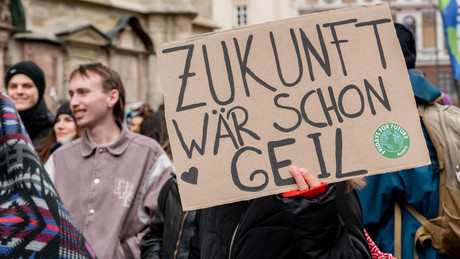 ZUKUNFT
WÄR SCHON
GEIL
FRIDAYS FOR FUTURE